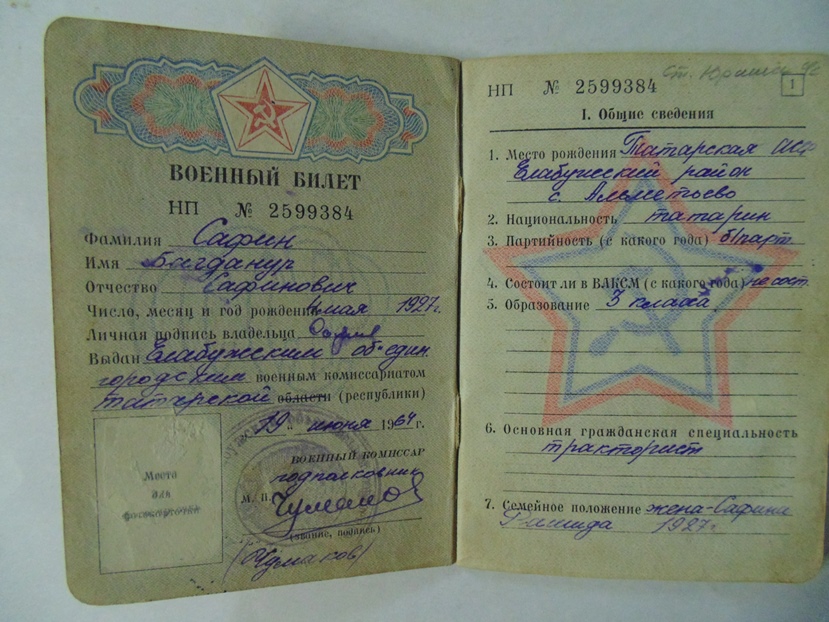 ВОЕННЫЙ БИЛЕТ
НП № 2599384
Фамилия Сафин
Имя Багданур
Отчество Сафинович
Число, месяц и год рождения 4 мая 1927г.
Личная подпись владельца
Выдан Елабужским объедин.
городским военным комиссариатом
Татарской области (республики)
"19" июня 1964 г.
ВОЕННЫЙ КОМИССАР
подполковник
М. П. Чумаков
(звание, подпись)
(Чумаков)
Место
для
фотокарточки
Ст.
НП № 2599384
1
I. Общие сведения
1. Место рождения Татарская АССР
Елабужский район
с. Альметьево
2. Национальность татарин
3. Партийность (с какого года) б/парт.
4. Состоит ли в ВЛКСМ (с какого года) не сост.
5. Образование 3 класса
6. Основная гражданская специальность
тракторист
7. Семейное положение жена-Сафина
1927г.